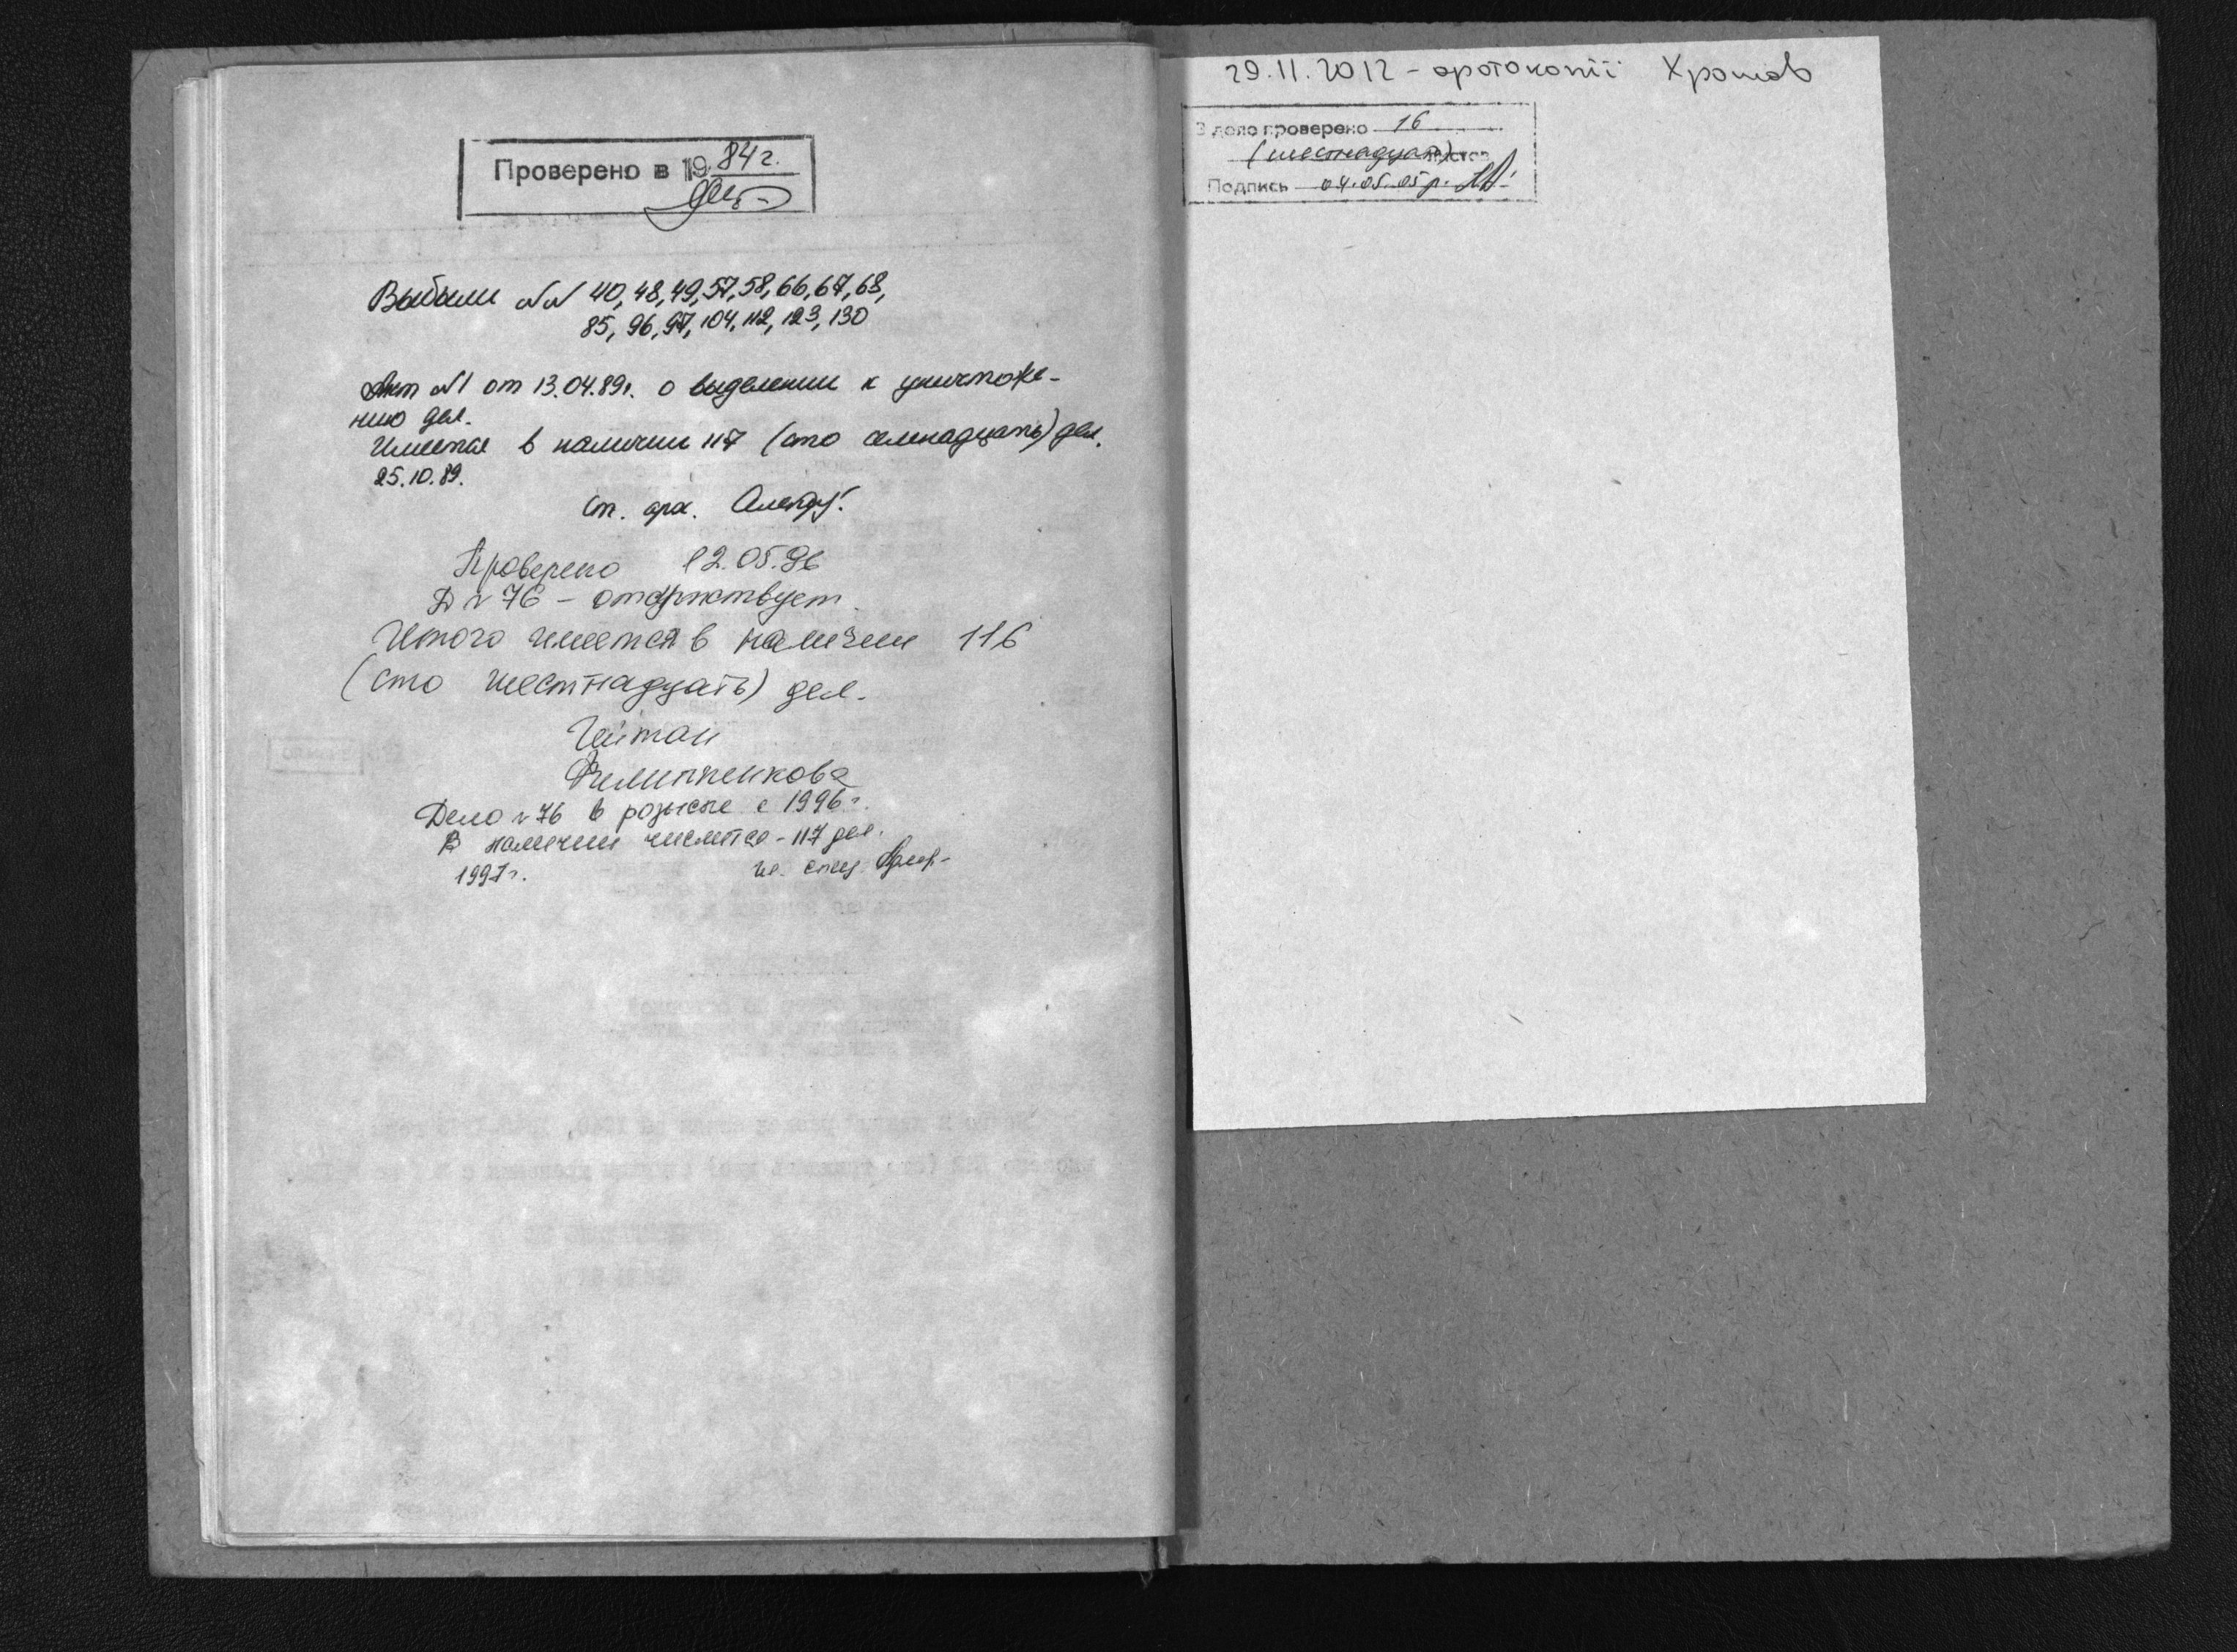 Проверено в 1984г.
Выбыли №№ 40, 48, 49, 57, 58, 66, 67, 68,
85, 96, 97, 104, 112, 123, 130
Акт №1 от 13.04.89г. о выделении к уничтоже-
нию дел.
Имеется в наличии 117 (сто семнадцать) дел.
25.10.89.
Ст. арх.
Проверено 12.05.96
Д № 76 – отсутствует
Итого имеется в наличии 116
(сто шестнадцать) дел.
Дело №76 в розыске с 1996г.
В наличии числится - 117 дел.
1997г. спец.
29.11.2012 - фотокопії
В дело проверено 16
(шестнадцать) листов
Подпись 04.05.05р.